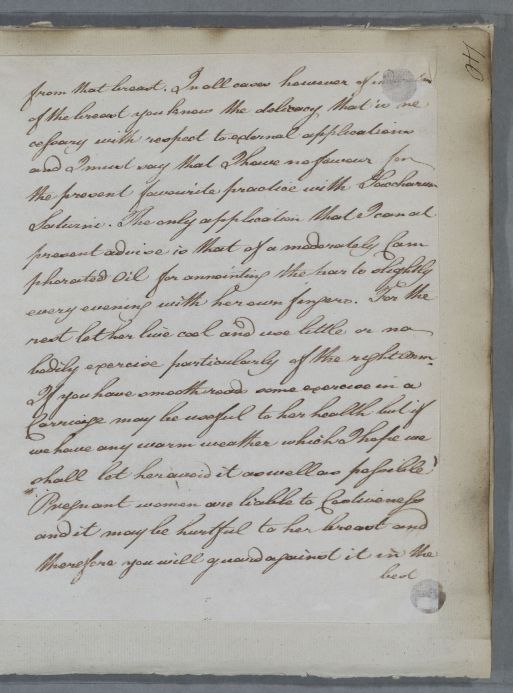 40
from that breast. In all cases however of
of the breast you know the delicacy that is ne
cessary with respect to external applications
and I must say that I have no favour for
the present favourite practice with Saccharum
Saturni. The only application that I can at
present advise is that of a moderately Cam
phorated Oil for annointing the part slightly
every evening with her own fingers. For the
rest let her live cool and use little or no
bodily exercise particularly of the right arm.
If you have smooth roads some exercise in a
Carriage may be useful to her health but if
we have any warm weather which I hope we
shall let her avoid it as well as possible
Pregnant women are liable to Costiveness
and it may be hurtful to her breast and
therefore you will guard against it in the
best